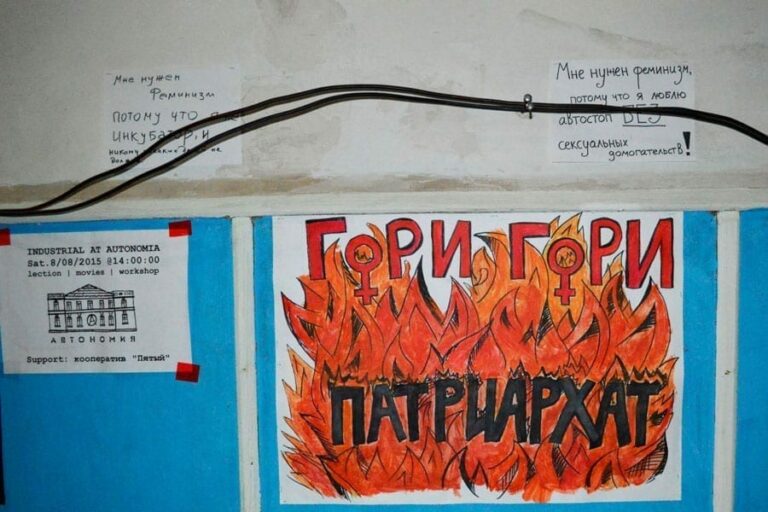 Мне нужен
Феминизм
потому что я не
инкубатор, и
никому
Мне нужен феминизм,
потому что я люблю
автостоп БЕЗ
сексуальных
домогательств!
INDUSTRIAL AT AUTONOMIA
Sat.8/08/2015 @14:00:00
lection | movies | workshop
АВТОНОМИЯ
Support: кооператив "Пятый"
ГОРИ ГОРИ
ПАТРИАРХАТ